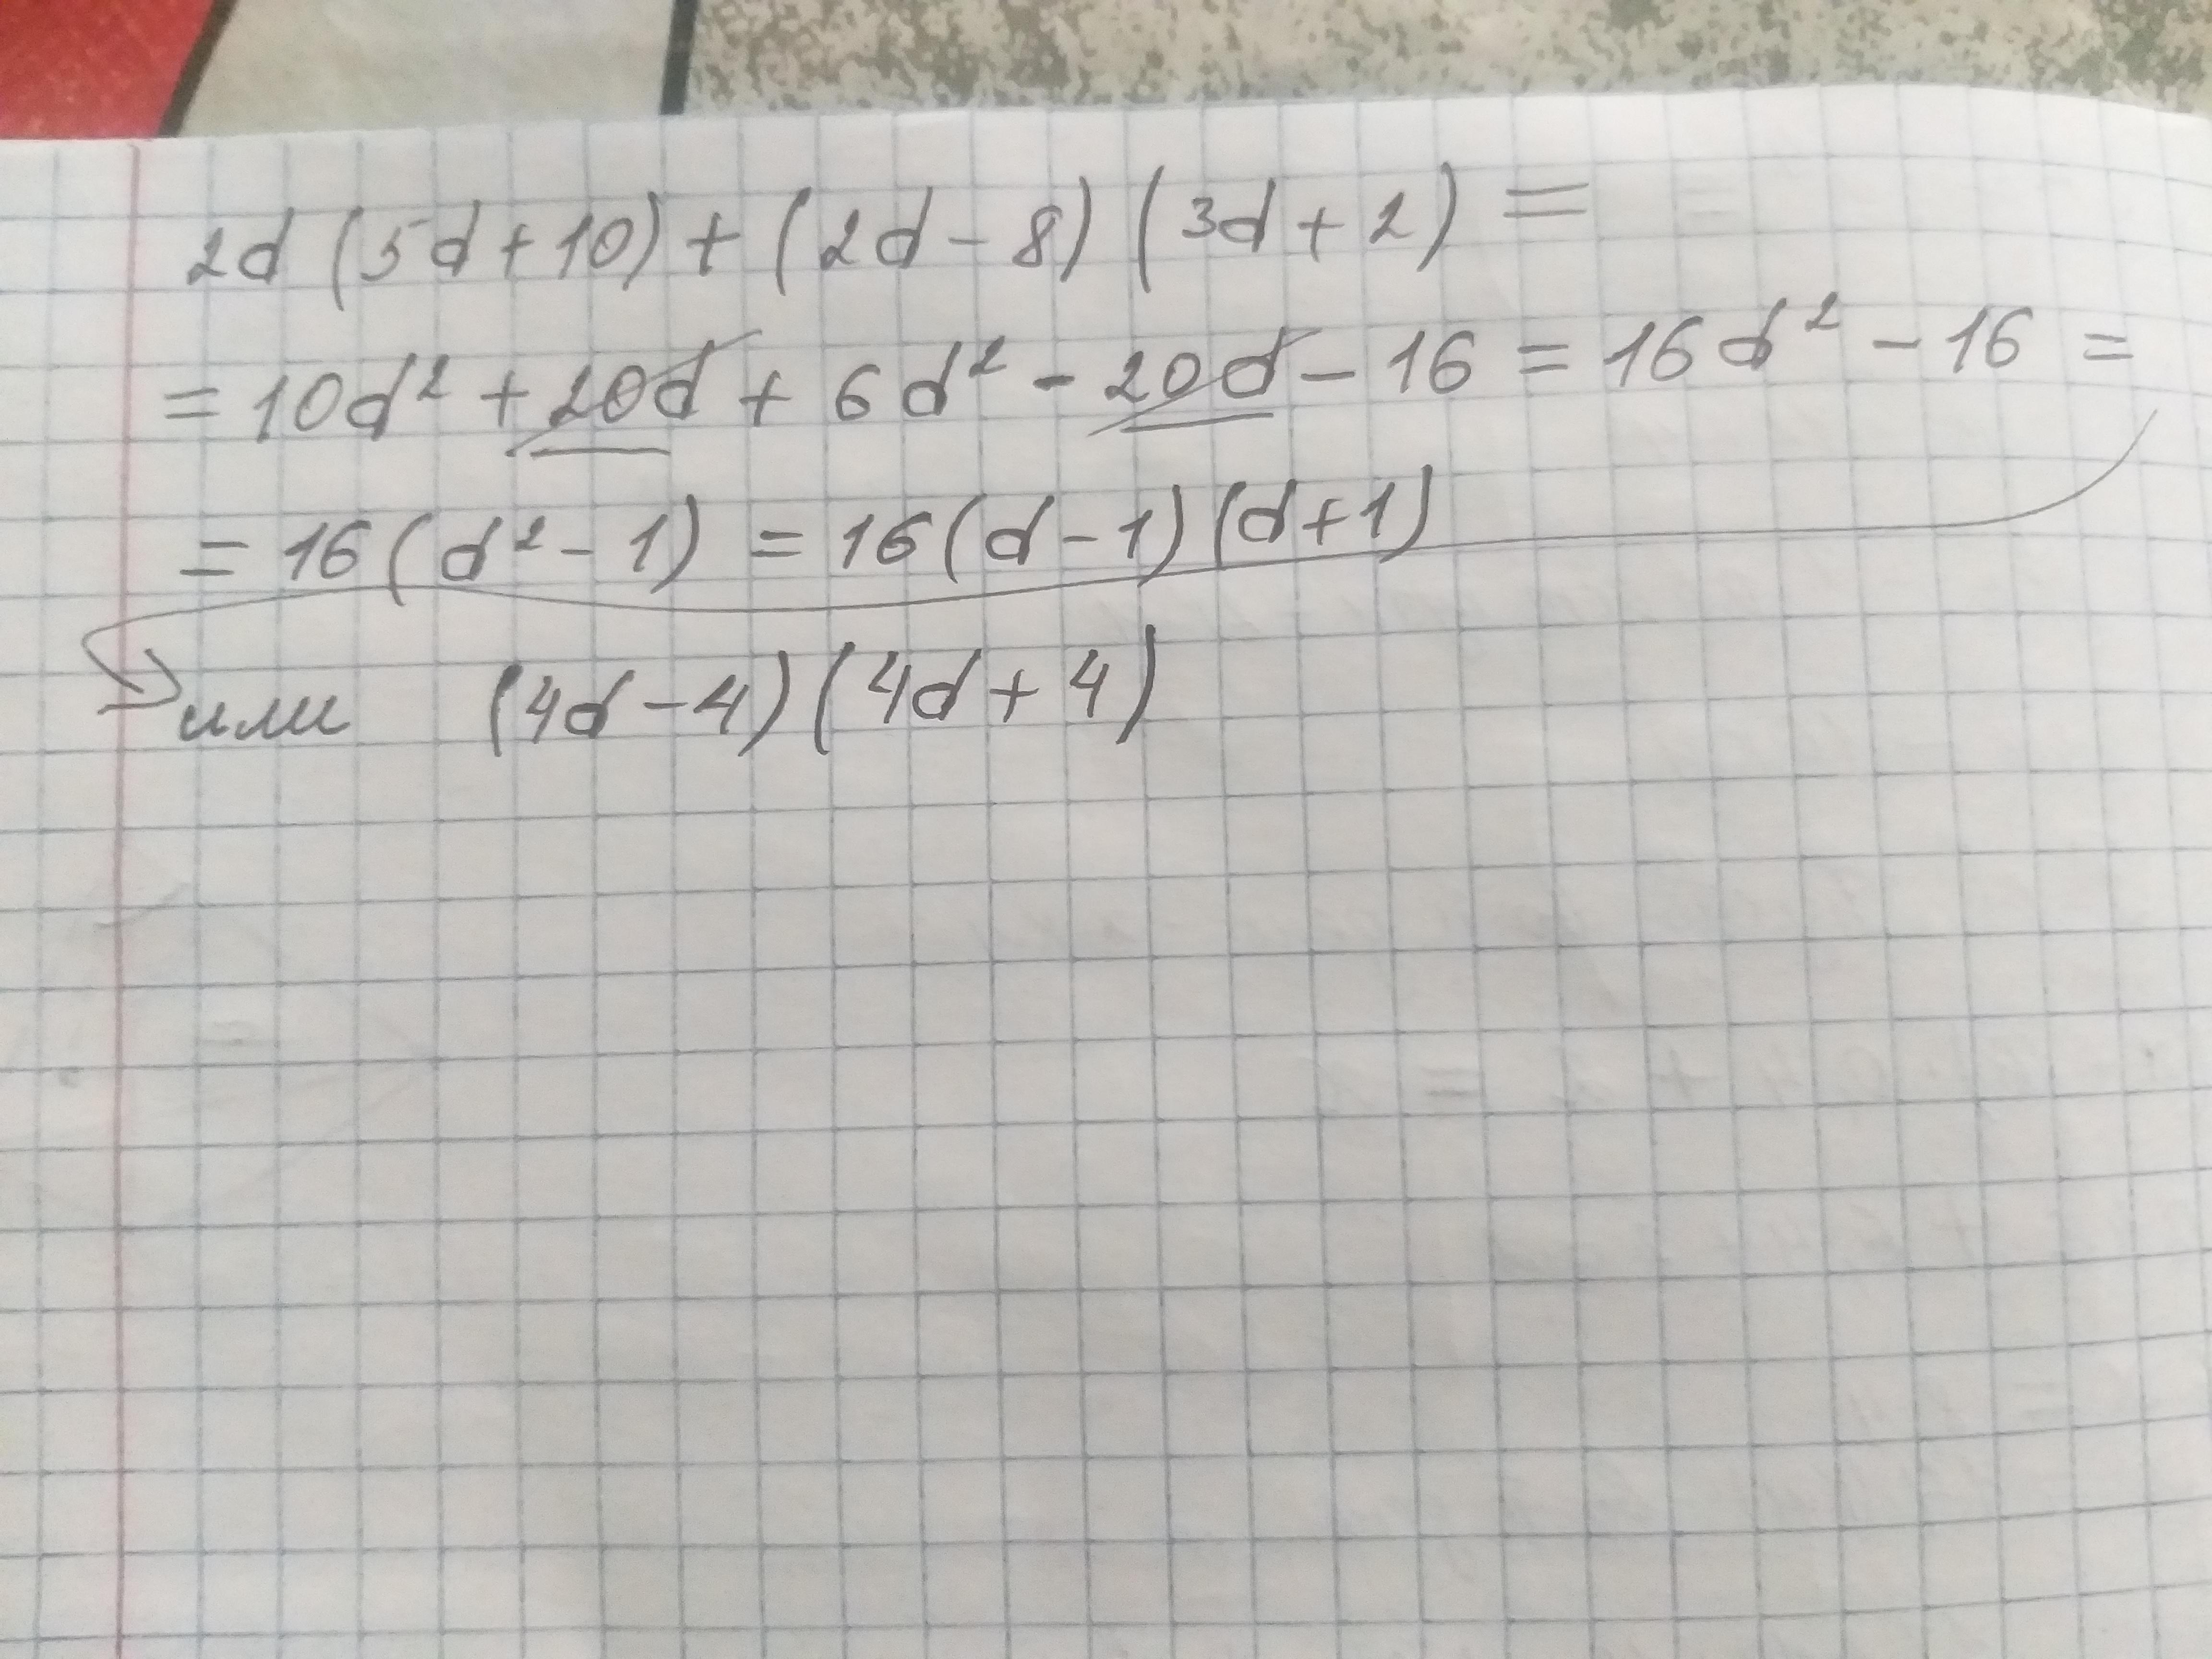 2d (5d + 10) + (2d - 8) (3d + 2) =
= 10d² + 20d + 6d² - 20d - 16 = 16d² - 16 =
= 16(d² - 1) = 16(d - 1)(d + 1)
или (4d - 4)(4d + 4)